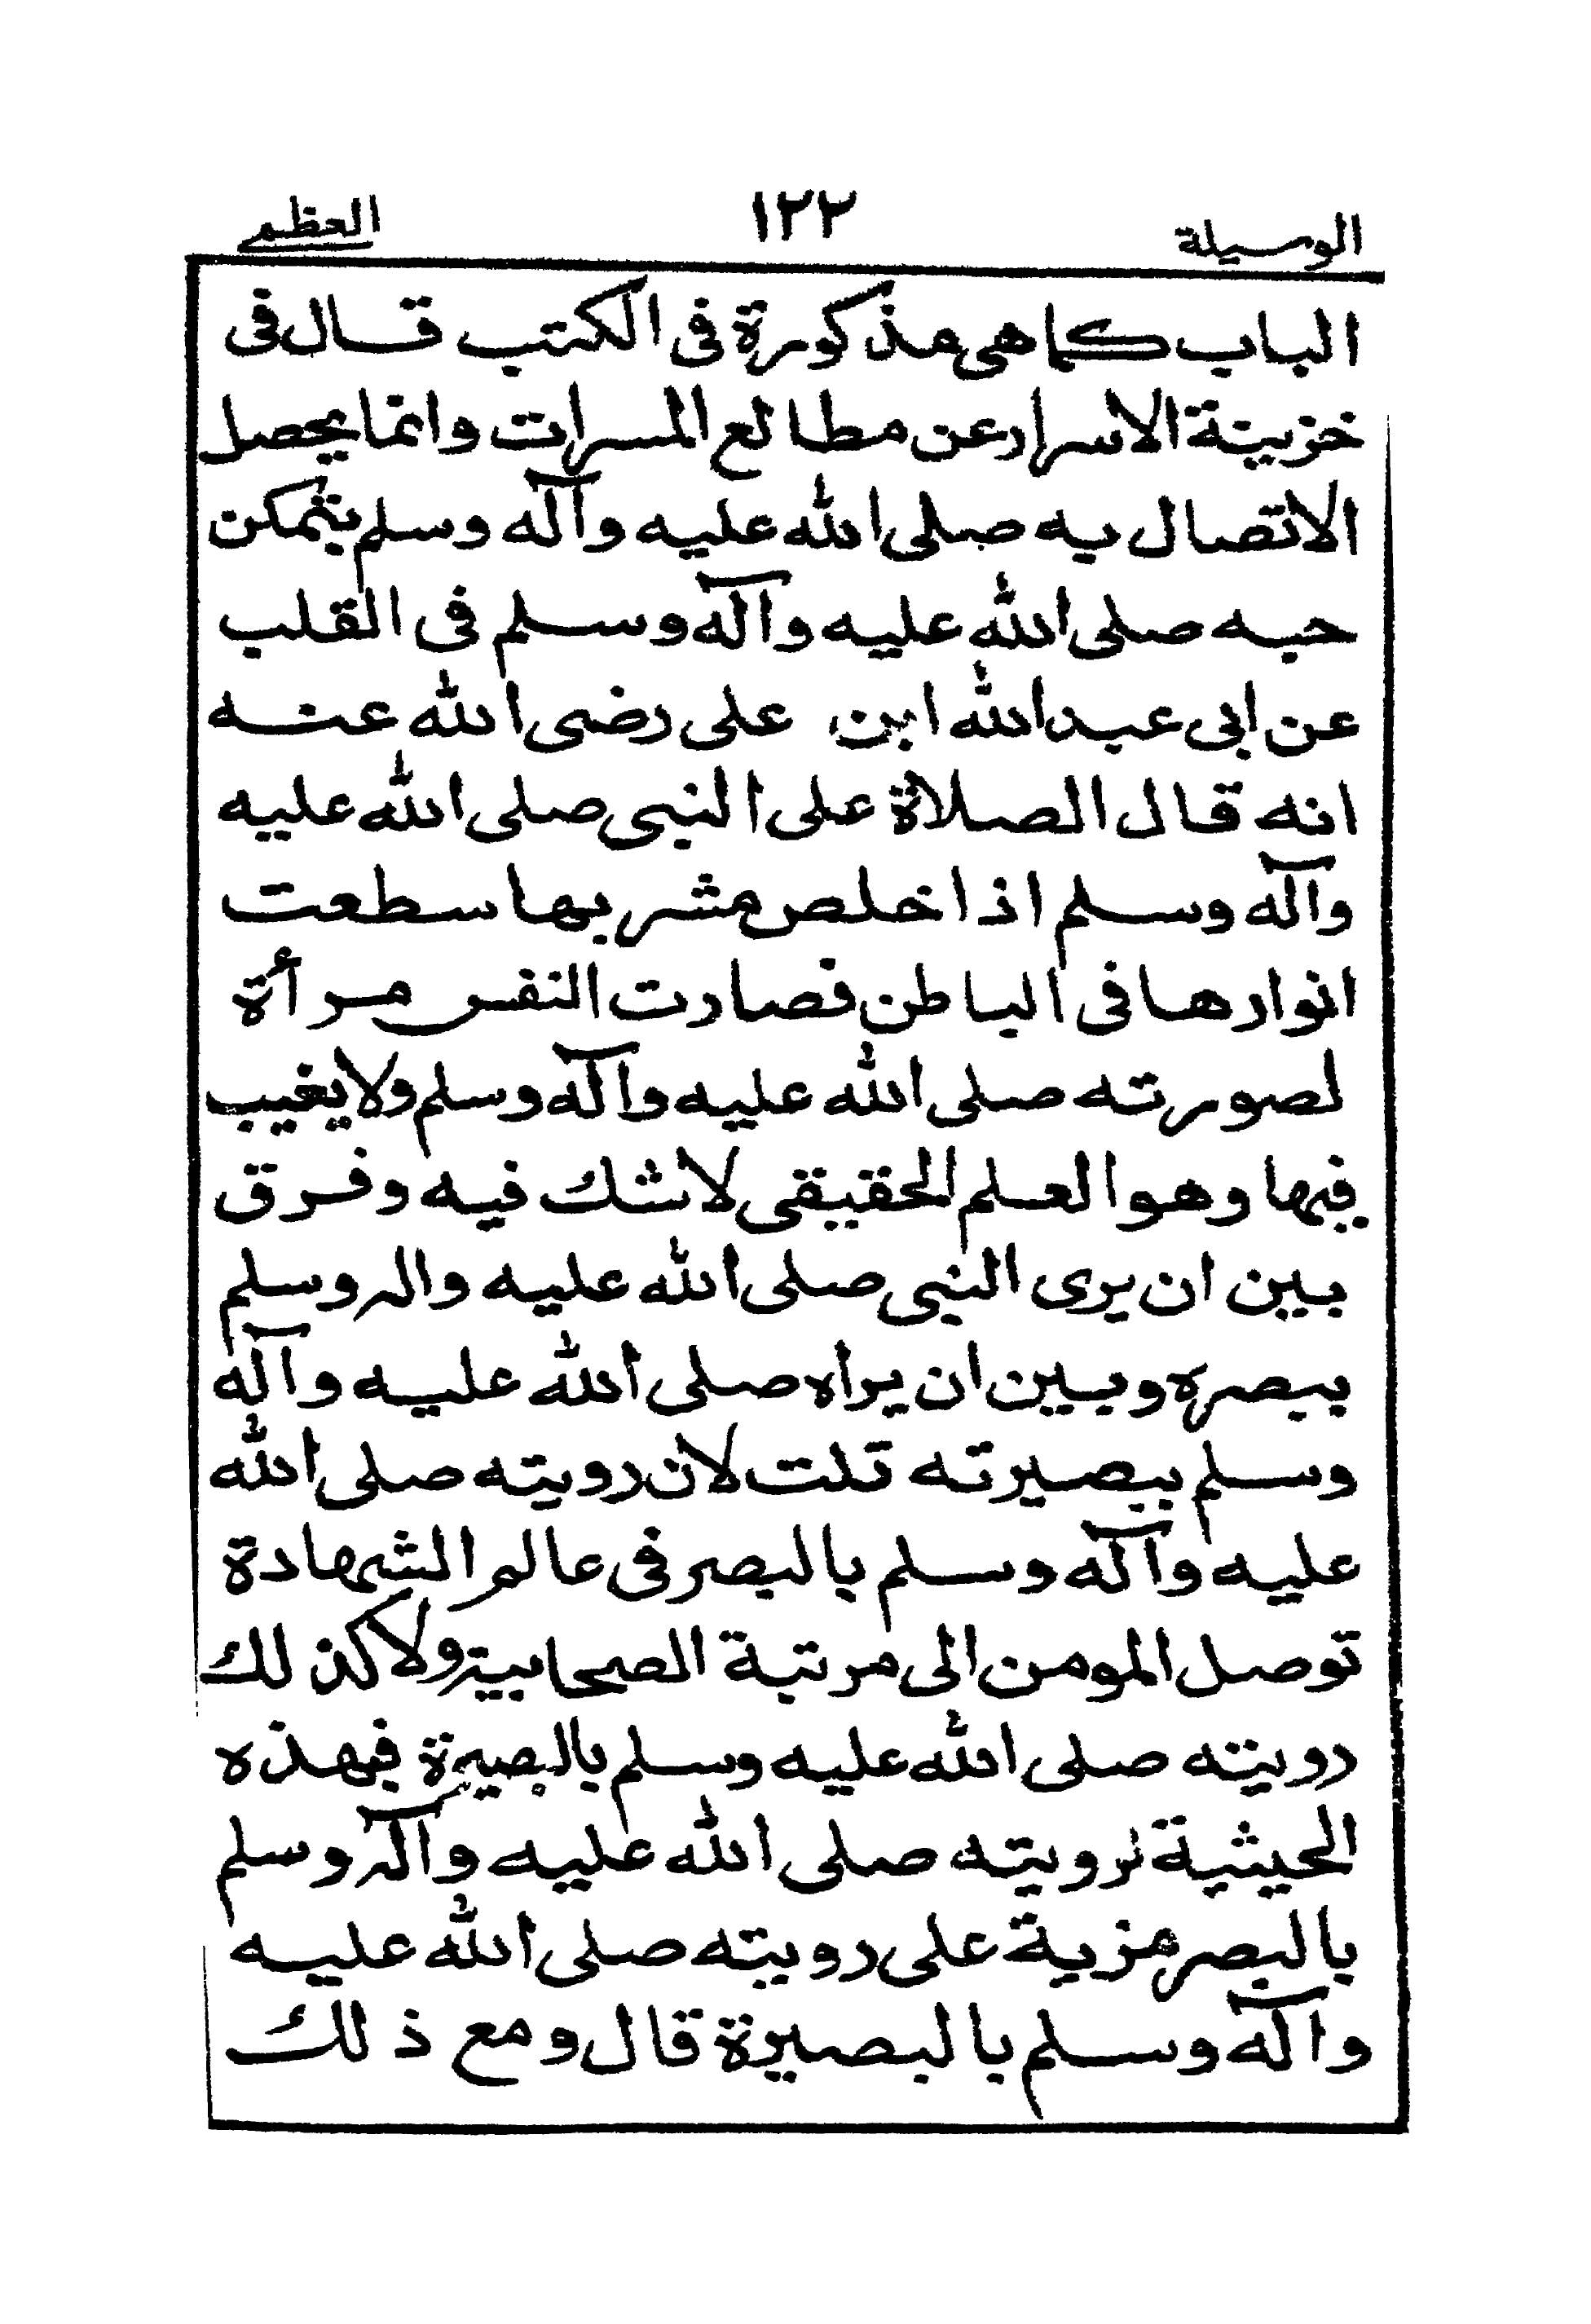 الوسيلة ١٢٢ العظمى
الباب كما هى مذكورة فى الكتب قال فى
خزينة الاسرار عن مطالع المسرات وانما يحصل
الاتصال به صلى الله عليه وآله وسلم بتمكن
حبه صلى الله عليه وآله وسلم فى القلب
عن ابى عبد الله ابن على رضى الله عنه
انه قال الصلاة على النبى صلى الله عليه
وآله وسلم اذا خلص مشربها سطعت
انوارها فى الباطن فصارت النفس مرأة
لصورته صلى الله عليه وآله وسلم ولا يغيب
فيها وهو العلم الحقيقى لا شك فيه وفرق
بين ان يرى النبى صلى الله عليه واله وسلم
ببصره وبين ان يراه صلى الله عليه وآله
وسلم ببصيرته قلت لان رويته صلى الله
عليه وآله وسلم بالبصر فى عالم الشهادة
توصل المومن الى مرتبة الصحابية ولا كذلك
رويته صلى الله عليه وسلم بالبصيرة فبهذه
الحيثية لرويته صلى الله عليه وآله وسلم
بالبصر مزية على رويته صلى الله عليه
وآله وسلم بالبصيرة قال ومع ذلك